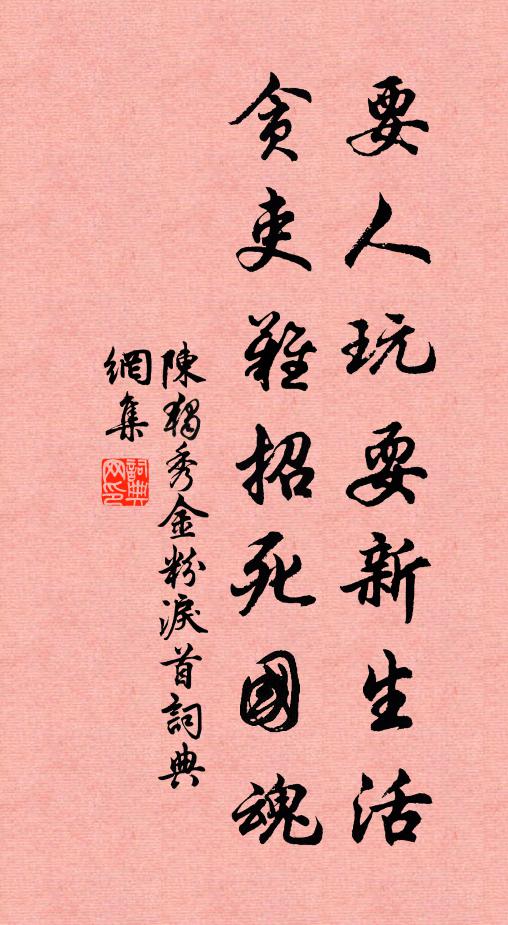 要人玩耍新生活
貪吏難招死國魂
陳獨秀金粉淚首詞典
網集
詞典网印